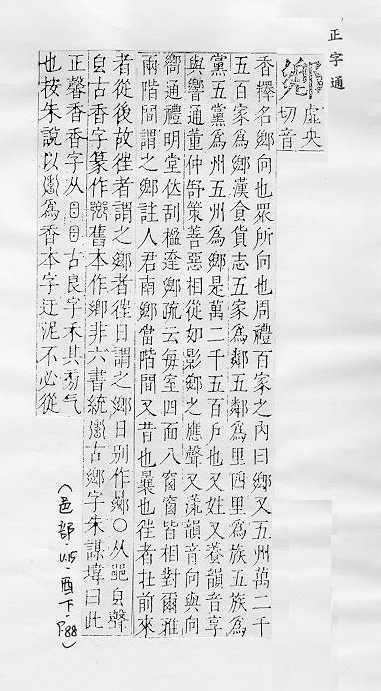 正字通
鄉
虛央
切音
香釋名鄉向也眾所向也周禮百家之內曰鄉又五州萬二千
五百家為鄉漢食貨志五家為鄰五鄰為里四里為族五族為
黨五黨為州五州為鄉是萬二千五百戶也又姓又養韻音享
與響通董仲舒策善惡相從如影鄉之應聲又漾韻音向與向
嚮通禮明堂位刮楹達鄉疏云每室四面八窗窗皆相對爾雅
兩階間謂之鄉註人君南鄉當階間又昔也曩也徃者在前來
者從後故徃者謂之鄉者徃日謂之鄉日別作曏〇从𨛜皀聲
皀古香字篆作
舊本作鄉非六書統
古鄉字朱謀㙔曰此
正馨香香字从
古良字禾其
气
也按朱說以
為香本字迂泥不必從
(邑部·酉下·P88)